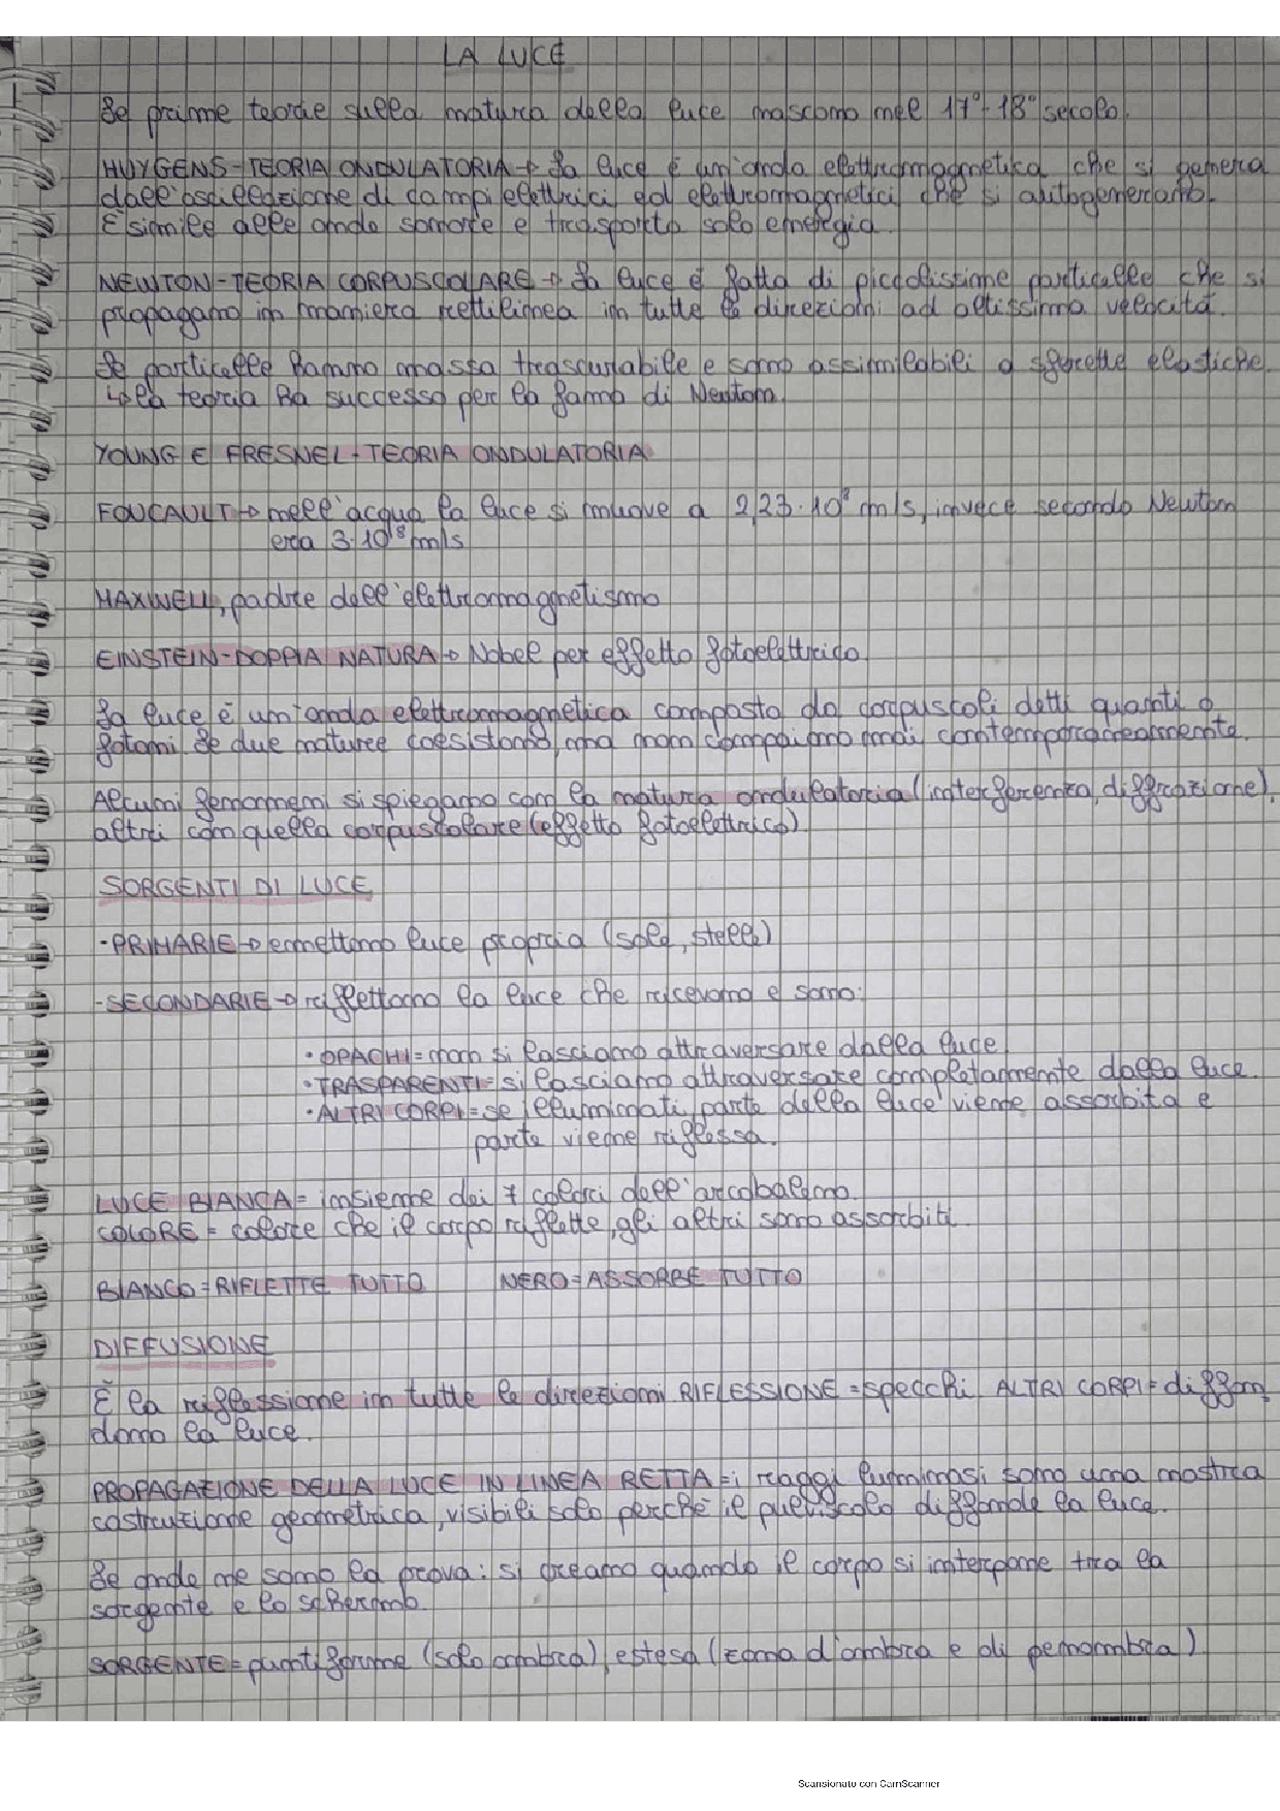 LA LUCE
Le prime teorie sulla natura della luce nascono nel 17°-18° secolo.
HUYGENS-TEORIA ONDULATORIA→ La luce è un'onda elettromagnetica che si genera
dall'oscillazione di campi elettrici ed elettromagnetici che si autogenerano.
È simile alle onde sonore e trasporta solo energia.
NEWTON-TEORIA CORPUSCOLARE→ La luce è fatta di piccolissime particelle che si
propagano in maniera rettilinea in tutte le direzioni ad altissima velocità.
Le particelle hanno massa trascurabile e sono assimilabili a sferette elastiche.
↳la teoria ha successo per la fama di Newton.
YOUNG E FRESNEL-TEORIA ONDULATORIA
FOUCAULT→ nell'acqua la luce si muove a 2,23·10⁸ m/s, invece secondo Newton
era 3·10¹⁸ m/s
MAXWELL, padre dell'elettromagnetismo
EINSTEIN-DOPPIA NATURA→ Nobel per effetto fotoelettrico
La luce è un'onda elettromagnetica composta da corpuscoli detti quanti o
fotoni. Le due nature coesistono, ma non compaiono mai contemporaneamente.
Alcuni fenomeni si spiegano con la natura ondulatoria (interferenza, diffrazione),
altri con quella corpuscolare (effetto fotoelettrico)
SORGENTI DI LUCE
-PRIMARIE→ emettono luce propria (sole, stelle)
-SECONDARIE→ riflettono la luce che ricevono e sono:
·OPACHI=non si lasciano attraversare dalla luce
·TRASPARENTI=si lasciano attraversare completamente dalla luce.
·ALTRI CORPI=se illuminati, parte della luce viene assorbita e
parte viene riflessa.
LUCE BIANCA= insieme dei 7 colori dell'arcobaleno.
COLORE = colore che il corpo riflette, gli altri sono assorbiti.
BIANCO=RIFLETTE TUTTO NERO=ASSORBE TUTTO
DIFFUSIONE
È la riflessione in tutte le direzioni. RIFLESSIONE = specchi ALTRI CORPI= diffon
dono la luce.
PROPAGAZIONE DELLA LUCE IN LINEA RETTA=i raggi luminosi sono una nostra
costruzione geometrica, visibili solo perché il pulviscolo diffonde la luce.
Le onde ne sono la prova: si creano quando il corpo si interpone tra la
sorgente e lo schermo.
SORGENTE= puntiforme (solo ombra), estesa (zona d'ombra e di penombra)
Scansionato con CamScanner